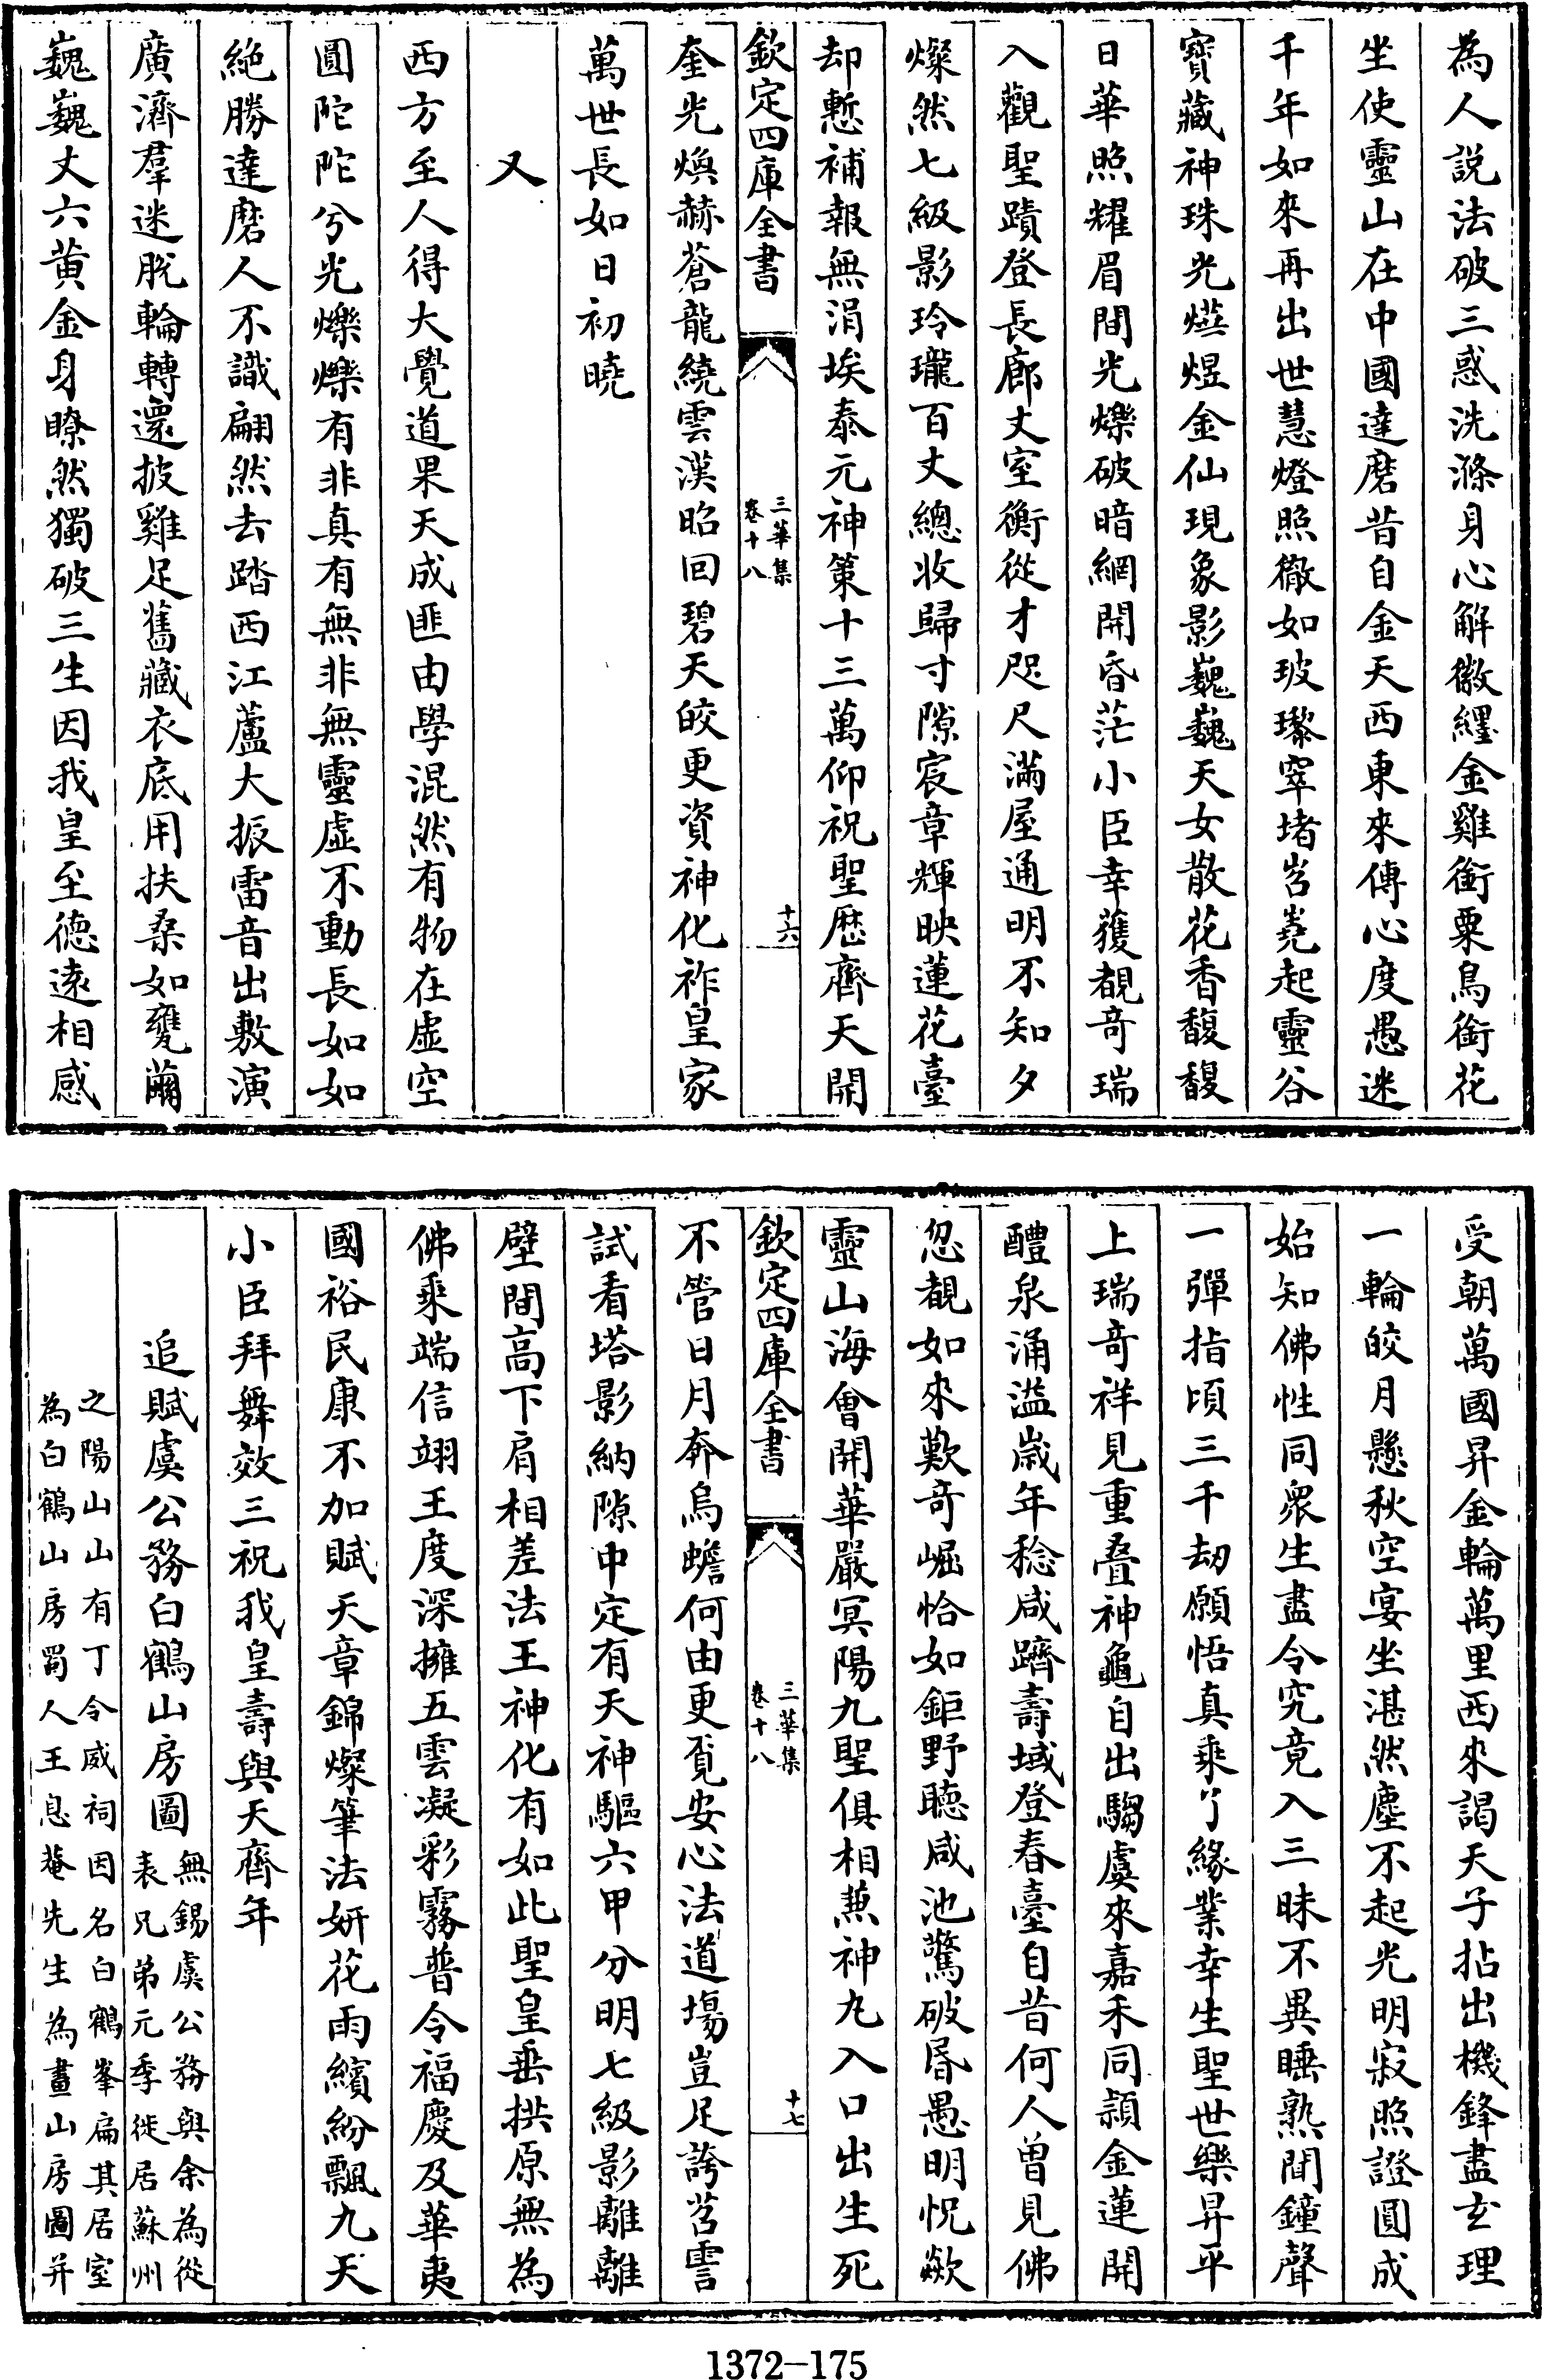 為人説法破三惑洗滌身心解徽纆金雞銜粟鳥銜花
坐使靈山在中國達磨昔自金天西東來傳心度愚迷
千年如來再出世慧燈照徹如玻瓈窣堵岧嶤起靈谷
寶藏神珠光爚煜金仙現象影巍巍天女散花香馥馥
日華照耀眉間光爍破暗網開昏茫小臣幸獲覩竒瑞
入觀聖蹟登長廊丈室衡從才咫尺滿屋通明不知夕
燦然七級影玲瓏百丈總收歸寸隙宸章輝映蓮花臺
却慙補報無涓埃泰元神策十三萬仰祝聖歴齊天開
欽定四庫全書
三華集
卷十八
十六
奎光煥赫蒼龍繞雲漢昭回碧天皎更資神化祚皇家
萬世長如日初曉
又
西方至人得大覺道果天成匪由學混然有物在虛空
圓陀陀兮光爍爍有非真有無非無靈虛不動長如如
絶勝達磨人不識翩然去踏西江蘆大振雷音出敷演
廣濟羣迷脱輪轉還披雞足舊藏衣底用扶桑如甕繭
巍巍丈六黄金身瞭然獨破三生因我皇至徳逺相感
受朝萬國昇金輪萬里西來謁天子拈出機鋒盡玄理
一輪皎月懸秋空宴坐湛然塵不起光明寂照證圓成
始知佛性同衆生盡令究竟入三昧不異睡熟聞鐘聲
一彈指頃三千劫願悟真乘了緣業幸生聖世樂昇平
上瑞竒祥見重疊神龜自出騶虞來嘉禾同頴金蓮開
醴泉涌溢歲年稔咸躋壽域登春臺自昔何人曽見佛
忽覩如來歎竒崛恰如鉅野聴咸池驚破昏愚明怳歘
靈山海會開華嚴冥陽九聖俱相蕪神丸入口出生死
欽定四庫全書
三華集
卷十八
十七
不管日月奔烏蟾何由更覓安心法道塲豈足誇苕霅
試看塔影納隙中定有天神驅六甲分明七級影離離
壁間高下肩相差法王神化有如此聖皇垂拱原無為
佛乘端信翊王度深擁五雲凝彩霧普令福慶及華夷
國裕民康不加賦天章錦燦筆法妍花雨繽紛飄九天
小臣拜舞效三祝我皇壽與天齊年
追賦虞公務白鶴山房圖
無錫虞公務與余為從
表兄弟元季徙居蘇州
之陽山山有丁令威祠因名白鶴峯扁其居室
為白鶴山房蜀人王息菴先生為畫山房圖并
1372-175